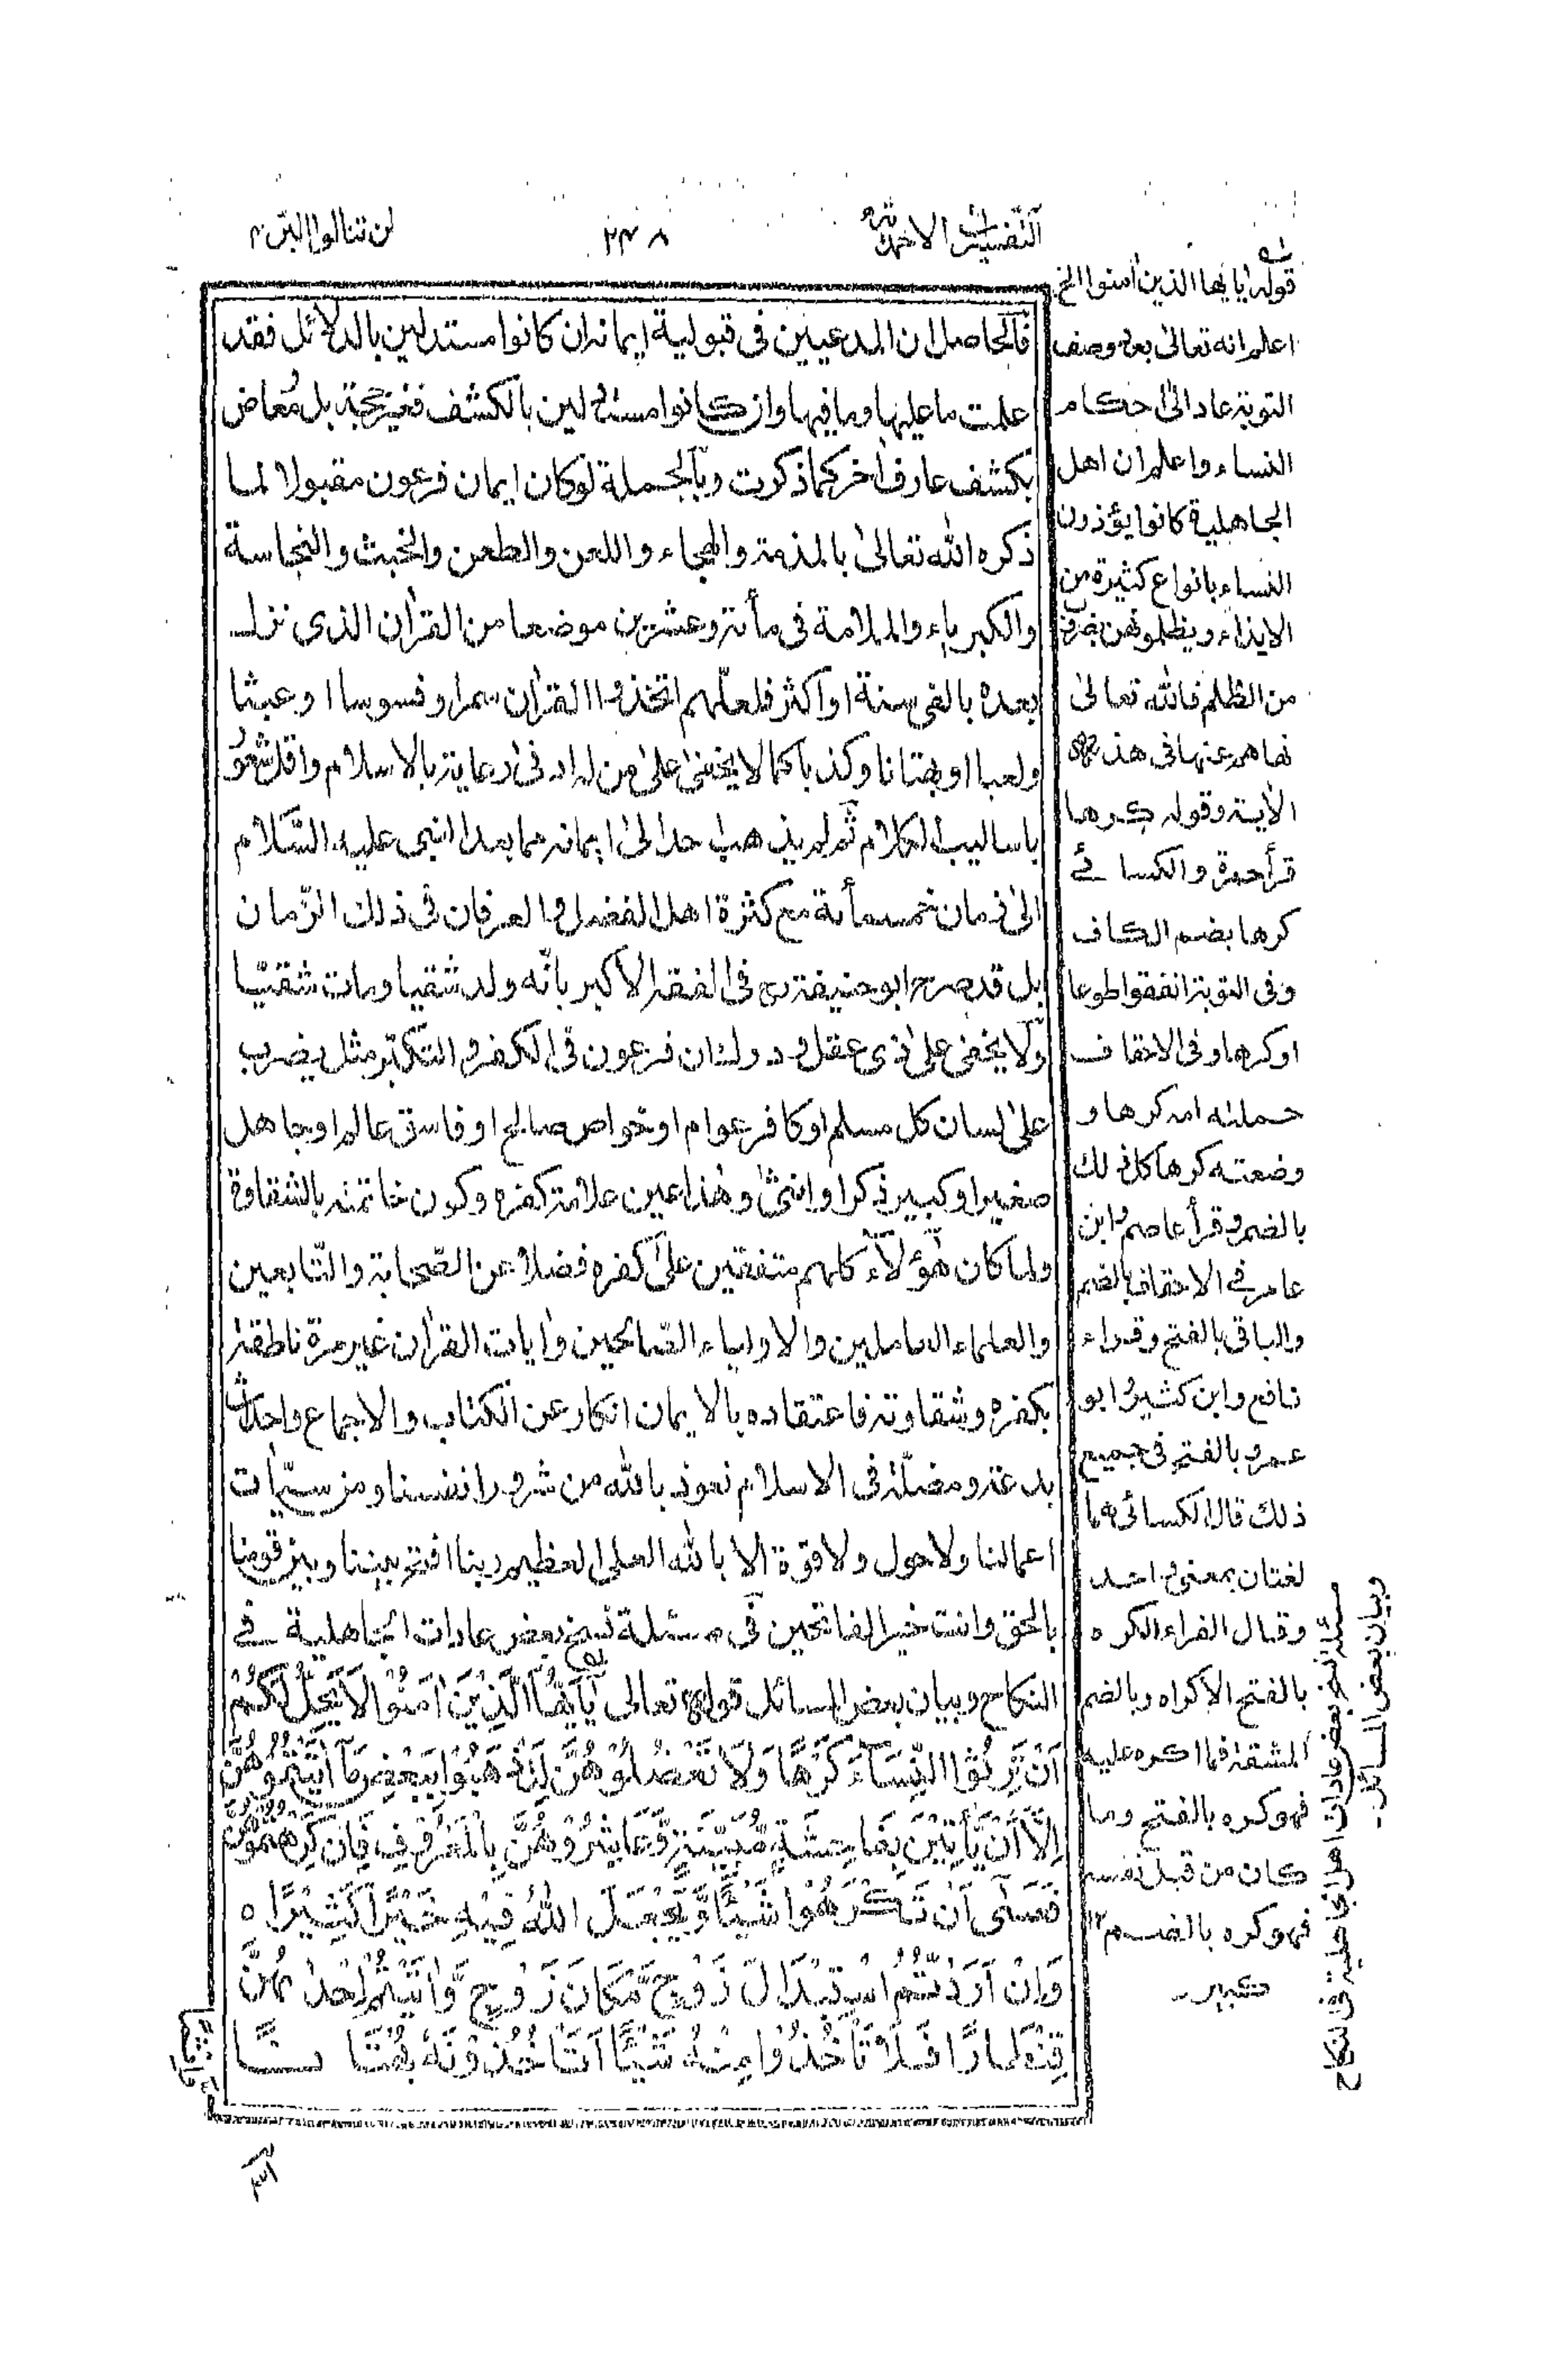 التفسيرات الاحمدية
٢٤٨
لن تنالوا البر ٤
فالحاصل ان المدعيين فى قبولية ايمانه ان كانوا مستدلين بالدلائل فقد
علمت ما عليها وما فيها وان كانوا مستدلين بالكشف فغير حجة بل معارض
بكشف عارف اٰخر كما ذكرت وبالجملة لو كان ايمان فرعون مقبولا لما
ذكره الله تعالىٰ بالمذمة والهجاء واللعن والطعن والخبث والنجاسة
والكبرياء والملامة فى مأئة وعشرين موضعا من القراٰن الذى نزل
بعده بالفى سنة او اكثر فلعلّهم اتخذوا القراٰن سمرا وفسوسا او عبثا
ولعبا او بهتانا وكذبا كما لا يخفى علىٰ من له ادنىٰ دعاية بالاسلام واقل شعور
باساليب الكلام ثم لم يذهب احد الىٰ ايمانه مما بعد النبى عليه السّلام
الىٰ زمان خمسمأئة مع كثرة اهل الفضل والعرفان فى ذلك الزّمان
بل قد صرح ابو حنيفة رح فى الفقه الاكبر بانّه ولد شقيا ومات شقيّا
ولا يخفى علىٰ ذى عقل ودرك ان فرعون فى الكفر والتكبّر مثل يضرب
علىٰ لسان كل مسلم او كافر عوام او خواص صالح او فاسق عالم او جاهل
صغير او كبير ذكر او انثىٰ وهٰذا عين علامة كفره وكون خاتمته بالشقاوة
ولما كان هٰؤلاۤء كلهم متفقين علىٰ كفره فضلا عن الصّحابة والتّابعين
والعلماء العاملين والاولياء الصّالحين واٰيات القراٰن غير مرة ناطقة
بكفره وشقاوته فاعتقاده بالايمان انكار عن الكتاب والاجماع واحداث
بدعة ومضلّة فى الاسلام نعوذ بالله من شرور انفسنا ومن سيّاٰت
اعمالنا ولا حول ولا قوة الا بالله العلى العظيم ربنا افتح بيننا وبين قومنا
بالحق وانت خير الفاتحين فى مسئلة نسخ بعض عادات الجاهلية فى
النكاح وبيان بعض المسائل قوله تعالى يٰۤاَيُّهَا الَّذِيْنَ اٰمَنُوْا لَا يَحِلُّ لَكُمْ
اَنْ تَرِثُوا النِّسَآءَ كَرْهًا وَلَا تَعْضُلُوْهُنَّ لِتَذْهَبُوْا بِبَعْضِ مَآ اٰتَيْتُمُوْهُنَّ
اِلَّآ اَنْ يَّأْتِيْنَ بِفَاحِشَةٍ مُّبَيِّنَةٍ وَّعَاشِرُوْهُنَّ بِالْمَعْرُوْفِ فَاِنْ كَرِهْتُمُوْهُنَّ
فَعَسٰٓى اَنْ تَكْرَهُوْا شَيْئًا وَّيَجْعَلَ اللّٰهُ فِيْهِ خَيْرًا كَثِيْرًا ٥
وَاِنْ اَرَدْتُّمُ اسْتِبْدَالَ زَوْجٍ مَّكَانَ زَوْجٍ وَّاٰتَيْتُمْ اِحْدٰىهُنَّ
قِنْطَارًا فَلَا تَأْخُذُوْا مِنْهُ شَيْئًا اَتَأْخُذُوْنَهٗ بُهْتَانًا
وَّاِثْمًا
قوله يايها الذين اٰمنوا الخ
اعلم انه تعالىٰ بعد وصف
التوبة عاد الىٰ احكام
النساء واعلم ان اهل
الجاهلية كانوا يؤذون
النساء بانواع كثيرة من
الايذاء ويظلمونهن بضروب
من الظلم فالله تعالىٰ
نهاهم عنها فى هذه
الاٰية وقوله كرها
قرأ حمزة والكسائى
كرها بضم الكاف
وفى التوبة انفقوا طوعا
او كرها وفى الاحقاف
حملته امه كرها و
وضعته كرها كل ذلك
بالضم وقرأ عاصم وابن
عامر فى الاحقاف بالضم
والباقى بالفتح وقراء
نافع وابن كثير وابو
عمرو بالفتح فى جميع
ذلك قال الكسائى هما
لغتان بمعنى واحد
وقال الفراء الكره
بالفتح الاكراه وبالضم
المشقة فما اكره عليه
فهو كره بالفتح وما
كان من قبل نفسه
فهو كره بالضم ١٢
كبير
مسئلة نسخ بعض عادات اهل الجاهلية فى النكاح
وبيان بعض المسائل